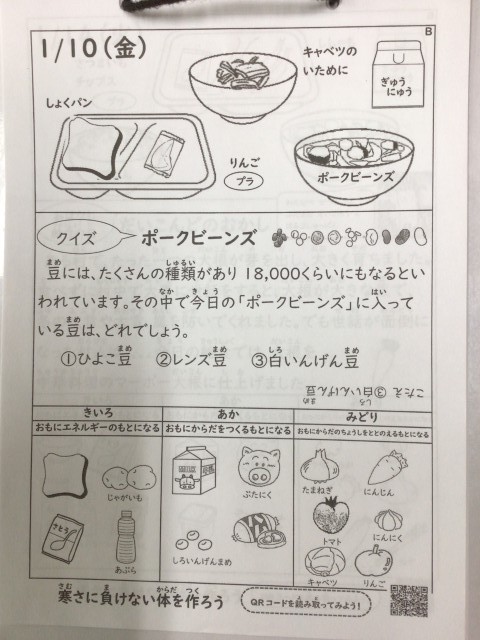 B
1/10(金)
キャベツの
いために
ぎゅう
にゅう
しょくパン
りんご
プラ
ポークビーンズ
クイズ
ポークビーンズ
豆には、たくさんの種類があり 18,000くらいにもなるとい
われています。その中で今日の「ポークビーンズ」に入って
いる豆は、どれでしょう。
①ひよこ豆 ②レンズ豆 ③白いんげん豆
こたえ ③白いんげん豆
きいろ
おもにエネルギーのもとになる
あか
おもにからだをつくるもとになる
みどり
おもにからだのちょうしをととのえるもとになる
じゃがいも
さとう
あぶら
ぶたにく
しろいんげんまめ
たまねぎ
にんじん
トマト
にんにく
キャベツ
りんご
寒さに負けない体を作ろう
QRコードを読み取ってみよう!